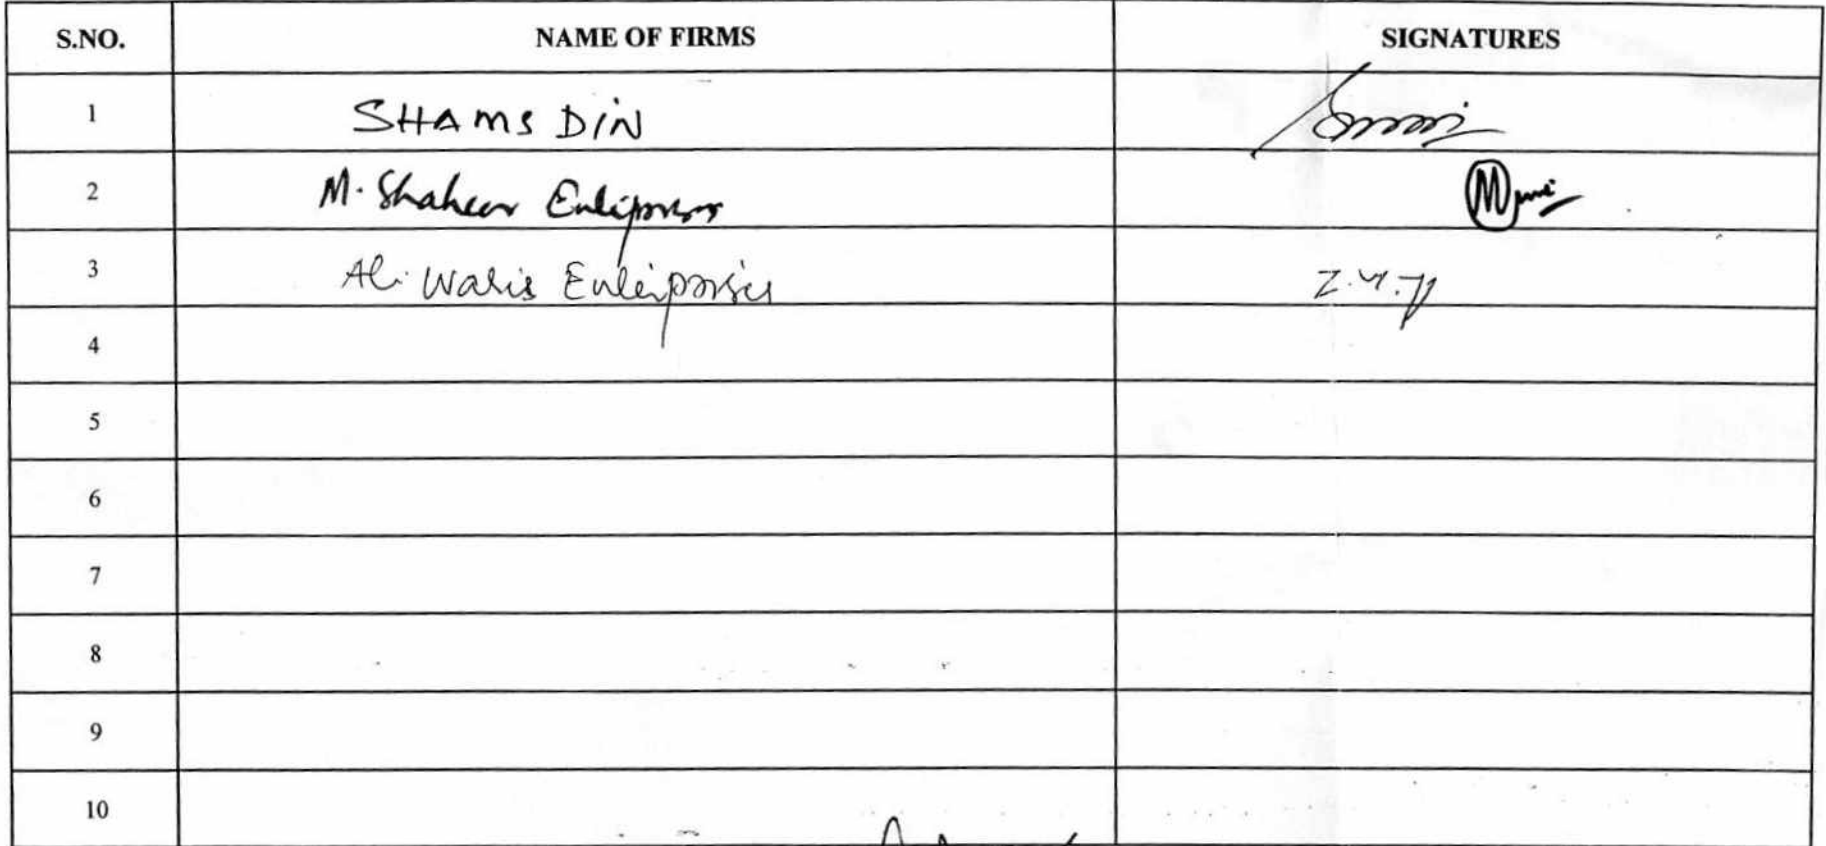 S.NO. NAME OF FIRMS SIGNATURES
1 SHAMS DIN
2 M. Shaheer Enterprises
3 Ali Waris Enterprises
4
5
6
7
8
9
10